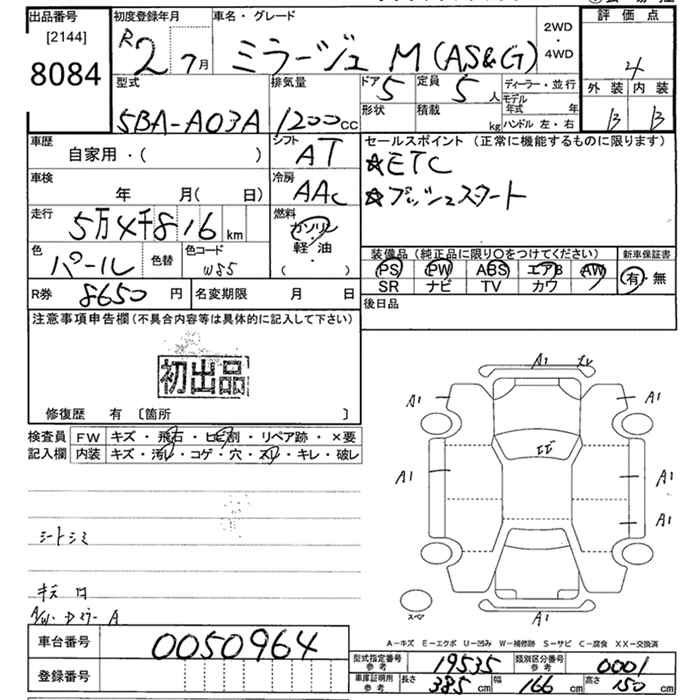 出品番号 初度登録年月 車名・グレード 2WD・4WD 評価点
[2144] R2 7月 ミラージュ M(AS&G) 4
8084 型式 排気量 ドア 5 定員 5人 ディーラー・並行 外装 内装
5BA-A03A 1200cc 形状 積載 kg モデル年式 年 B B
ハンドル 左・右
車歴 シフト セールスポイント (正常に機能するものに限ります)
自家用・( ) AT ☆ETC
車検 冷房 ☆プッシュスタート
年 月( 日) AAC
走行 燃料
5万4千816km ガソリン
軽・油
( )
色 色替 色コード 装備品(純正品に限り○をつけてください) 新車保証書
パール W85 PS PW ABS エアB AW 有・無
SR ナビ TV カワ
R券 8650円 名変期限 月 日 後日品
注意事項申告欄(不具合内容等は具体的に記入して下さい)
初出品
修復歴 有 [箇所 ]
検査員 FW キズ・飛石・ヒビ割・リペア跡・×要
記入欄 内装 キズ・汚レ・コゲ・穴・スレ・キレ・破レ
A1
A1 A1
エビ
A1 A1
A1
A1
シートシミ
A/W・Dミラー A
A-キズ E-エクボ U-凹み W-補修跡 S-サビ C-腐食 XX-交換済
車台番号 0050964
型式指定番号 参考 19535 類別区分番号 参考 0001
登録番号
車庫証明用 参考 長さ 385cm 幅 166cm 高さ 150cm